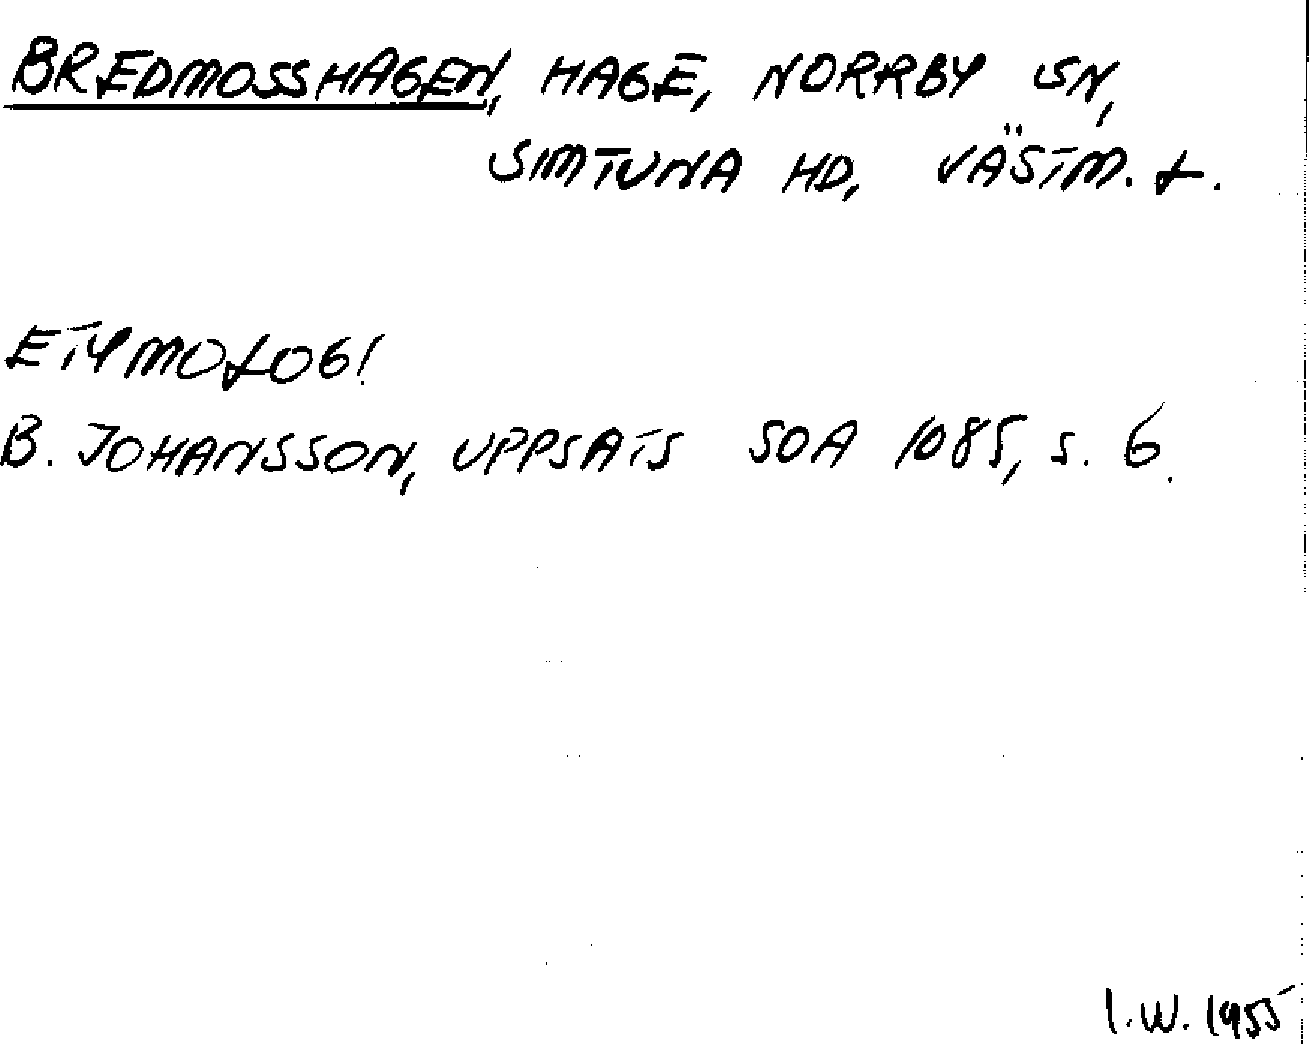 BREDMOSSHAGEN, HAGE, NORRBY SN,
SIMTUNA HD, VÄSTM. L.
ETYMOLOGI
B. JOHANSSON, UPPSATS SOA 1085, S. 6.
I.W. 1955